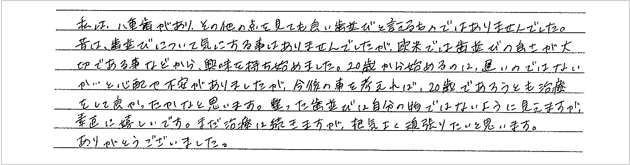 私は、八重歯があり、その他の点を見ても良い歯並びと言えるものではありませんでした。
昔は、歯並びについて気にする事はありませんでしたが、欧米では歯並びの良さが大
切である事などから、興味を持ち始めました。20歳から始めるのは、遅いのではない
か…と心配や不安がありましたが、今後の事を考えれば、20歳であろうとも治療
をして良かったかなと思います。整った歯並びは自分の物ではないように見えますが、
素直に嬉しいです。まだ治療は続きますが、根気よく頑張りたいと思います。
ありがとうございました。